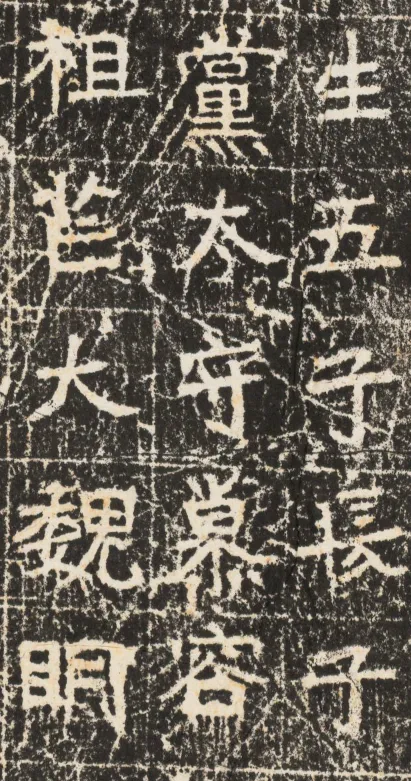 生五子長子
黨太守慕容
祖大魏眀